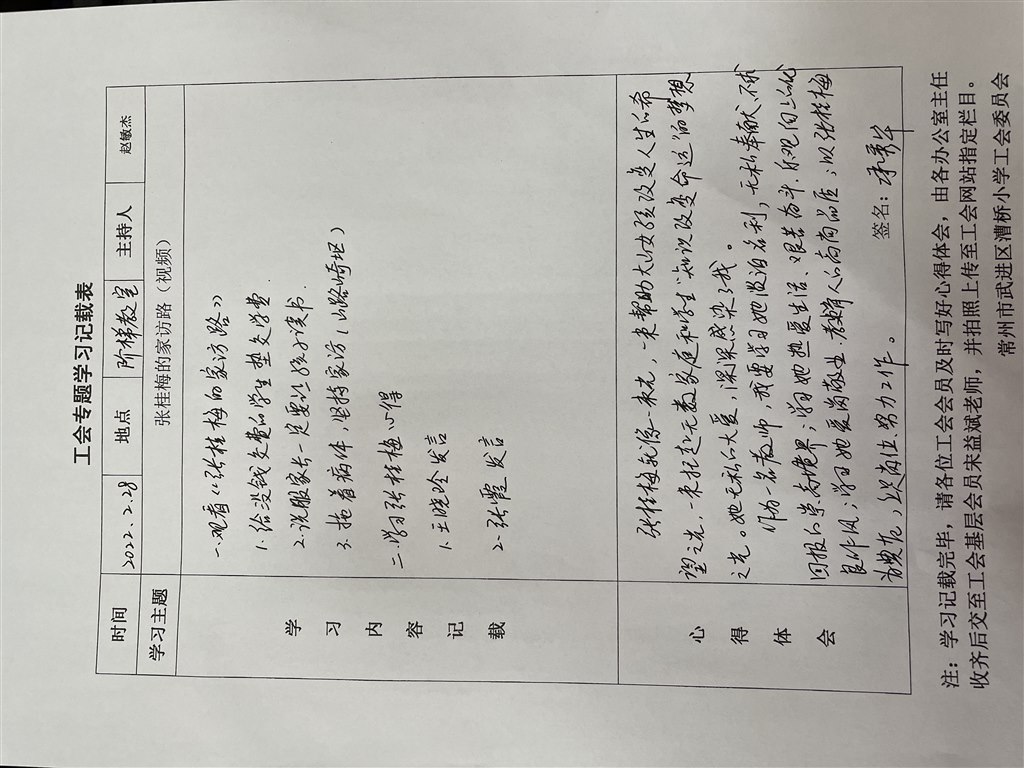 工会专题学习记载表
时间 2022.2.28 地点 阶梯教室 主持人 赵敏杰
学习主题 张桂梅的家访路（视频）
学习内容记载
一.观看《张桂梅的家访路》
1.给没钱交费的学生垫交学费.
2.说服家长一定要让孩子读书.
3.拖着病体,坚持家访（山路崎岖）
二.学习张桂梅心得
1.王晓玲发言
2.张霞发言
心得体会
张桂梅就像一束光,一束帮助大山女孩改变人生的希
望之光,一束托起无数家庭和学生"知识改变命运"的梦想
之光。她无私的大爱,深深感染了我。
作为一名教师,我要学习她淡泊名利,无私奉献不求
回报的崇高境界;学习她热爱生活、艰苦奋斗、乐观向上的优
良作风;学习她爱岗敬业、教书育人的高尚品质;以张桂梅
为典范,立足岗位.努力工作。
签名:
注：学习记载完毕，请各位工会会员及时写好心得体会，由各办公室主任
收齐后交至工会基层会员宋益斌老师，并拍照上传至工会网站指定栏目。
常州市武进区漕桥小学工会委员会